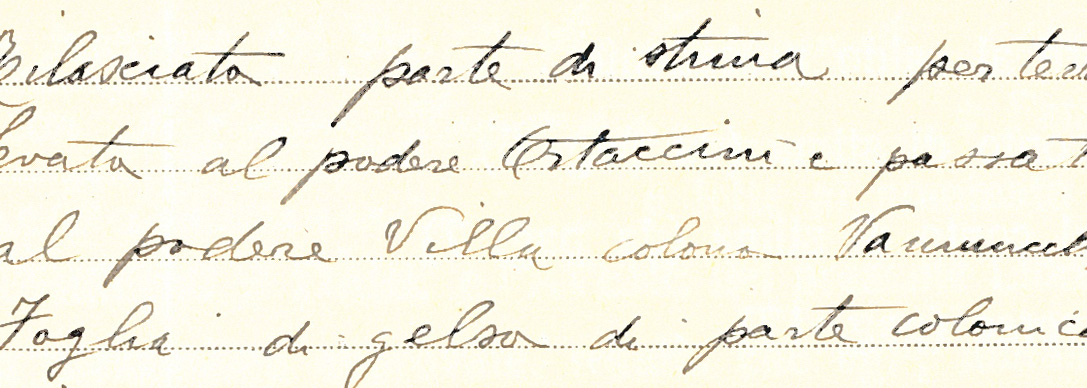 Rilasciata parte di stima per ter
levata al podere Ortaccini e passat
al podere Villa colono Vannucc
Foglia di gelso di parte colonica